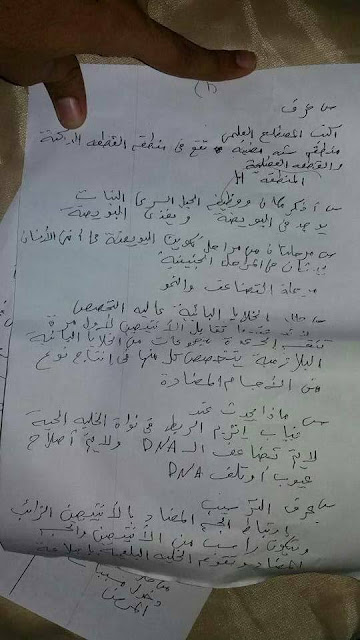 (١)
س عرف
اكتب المصطلح العلمي
منطقة شبه مضيئة تقع في منطقة القطعة الداكنة
والقطعة العضلية
المنطقة H
س أذكر مكان وظيفة الحبل السري النبات
يوجد في البويضة ويغذى البويضة
س مرحلتان من مراحل تكوين البويضة في أنثى الأنسان
يحدثان في المراحل الجنينية
مرحلة التضاعف والنمو
س علل الخلايا البائية عالية التخصص
لأنه عندما تقابل الأنتيجين لأول مرة
تنقسم مجموعات من الخلايا البائية
البلازمية يتخصص كل منها في إنتاج نوع
من الأجسام المضادة
س ماذا يحدث عند
غياب إنزيم الربط في نواة الخلية الحية
لا يتم تضاعف الـ DNA ولا يتم أصلاح
عيوب أو تلف DNA
س عرف الترسيب
ارتباط الجسم المضاد بالأنتيجين الذائب
ويكون راسب من الأنتيجين والجسم
المضاد وتقوم الخلية البلعمية